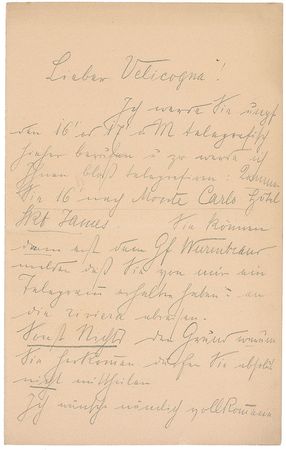 Lieber Velicogna!
Ich werde Sie ungf
den 16t es 17t d M telegrafisch
hieher berufen u zw werde ich
Ihnen bloß telegrafieren: Kommen
Sie 16t nach Monte Carlo Hôtel
St James Sie können
dann erst dem Gf Wurmbrand
melden daß Sie von mir ein
Telegramm erhalten haben an
die Riviera abreisen.
Sonst Nichts den Grund warum
Sie herkommen dürfen Sie absolut
nicht mittheilen
Ich wünsche nämlich vollkommene